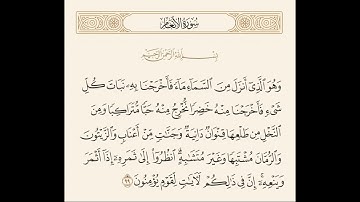 سورة الأنعام
بِسْمِ اللَّهِ الرَّحْمَٰنِ الرَّحِيمِ
وَهُوَ ٱلَّذِىٓ أَنزَلَ مِنَ ٱلسَّمَآءِ مَآءً فَأَخْرَجْنَا بِهِۦ نَبَاتَ كُلِّ
شَىْءٍ فَأَخْرَجْنَا مِنْهُ خَضِرًا نُّخْرِجُ مِنْهُ حَبًّا مُّتَرَاكِبًا وَمِنَ
ٱلنَّخْلِ مِن طَلْعِهَا قِنْوَانٌ دَانِيَةٌ وَجَنَّٰتٍ مِّنْ أَعْنَابٍ وَٱلزَّيْتُونَ
وَٱلرُّمَّانَ مُشْتَبِهًا وَغَيْرَ مُتَشَٰبِهٍ ۗ ٱنظُرُوٓا۟ إِلَىٰ ثَمَرِهِۦٓ إِذَآ أَثْمَرَ
وَيَنْعِهِۦٓ ۚ إِنَّ فِى ذَٰلِكُمْ لَءَايَٰتٍ لِّقَوْمٍ يُؤْمِنُونَ ٩٩